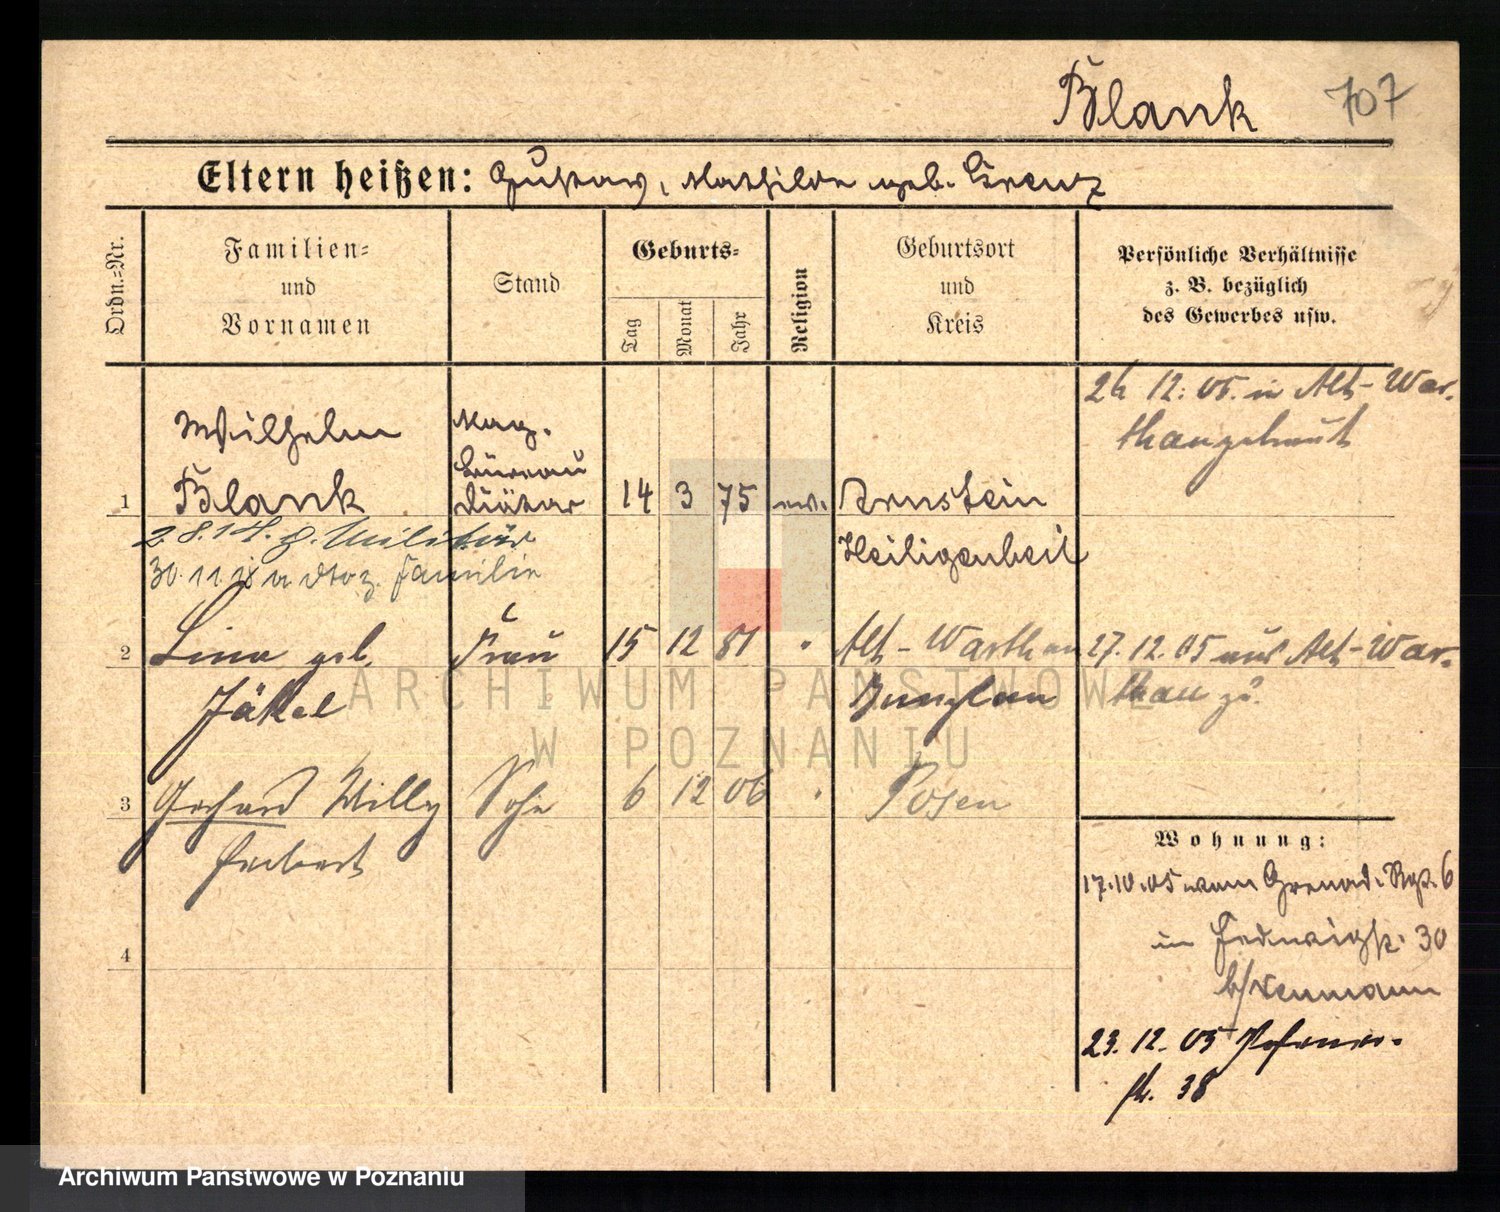 Blank 707
Eltern heißen: Gustav, Mathilde geb. Krenz
Ordn.-Nr.
Familien-
und
Vornamen
Stand
Geburts-
Tag
Monat
Jahr
Religion
Geburtsort
und
Kreis
Persönliche Verhältnisse
z. B. bezüglich
des Gewerbes usw.
26 12. 05. in Alt-War.
thau getraut
Wilhelm
Mag.
Bureau
1 Blank Diätar 14 3 75 ev. Arnstein
2.8.14. z. Militär
Heiligenbeil
30.11.18 Familie
2 Lina geb. Frau 15 12 81 " Alt-Warthau 27.12.05 aus Alt-War.
Jäkel Bunzlau thau zu.
ARCHIWUM PAŃSTWOWE
W POZNANIU
3 Gerhard Willy Sohn 6 12 06 " Posen
Herbert
Wohnung:
17.10.05 vom Grenad. Rgt. 6
in Hedwigstr. 30
4
b/
23.12.05
str. 38
Archiwum Państwowe w Poznaniu